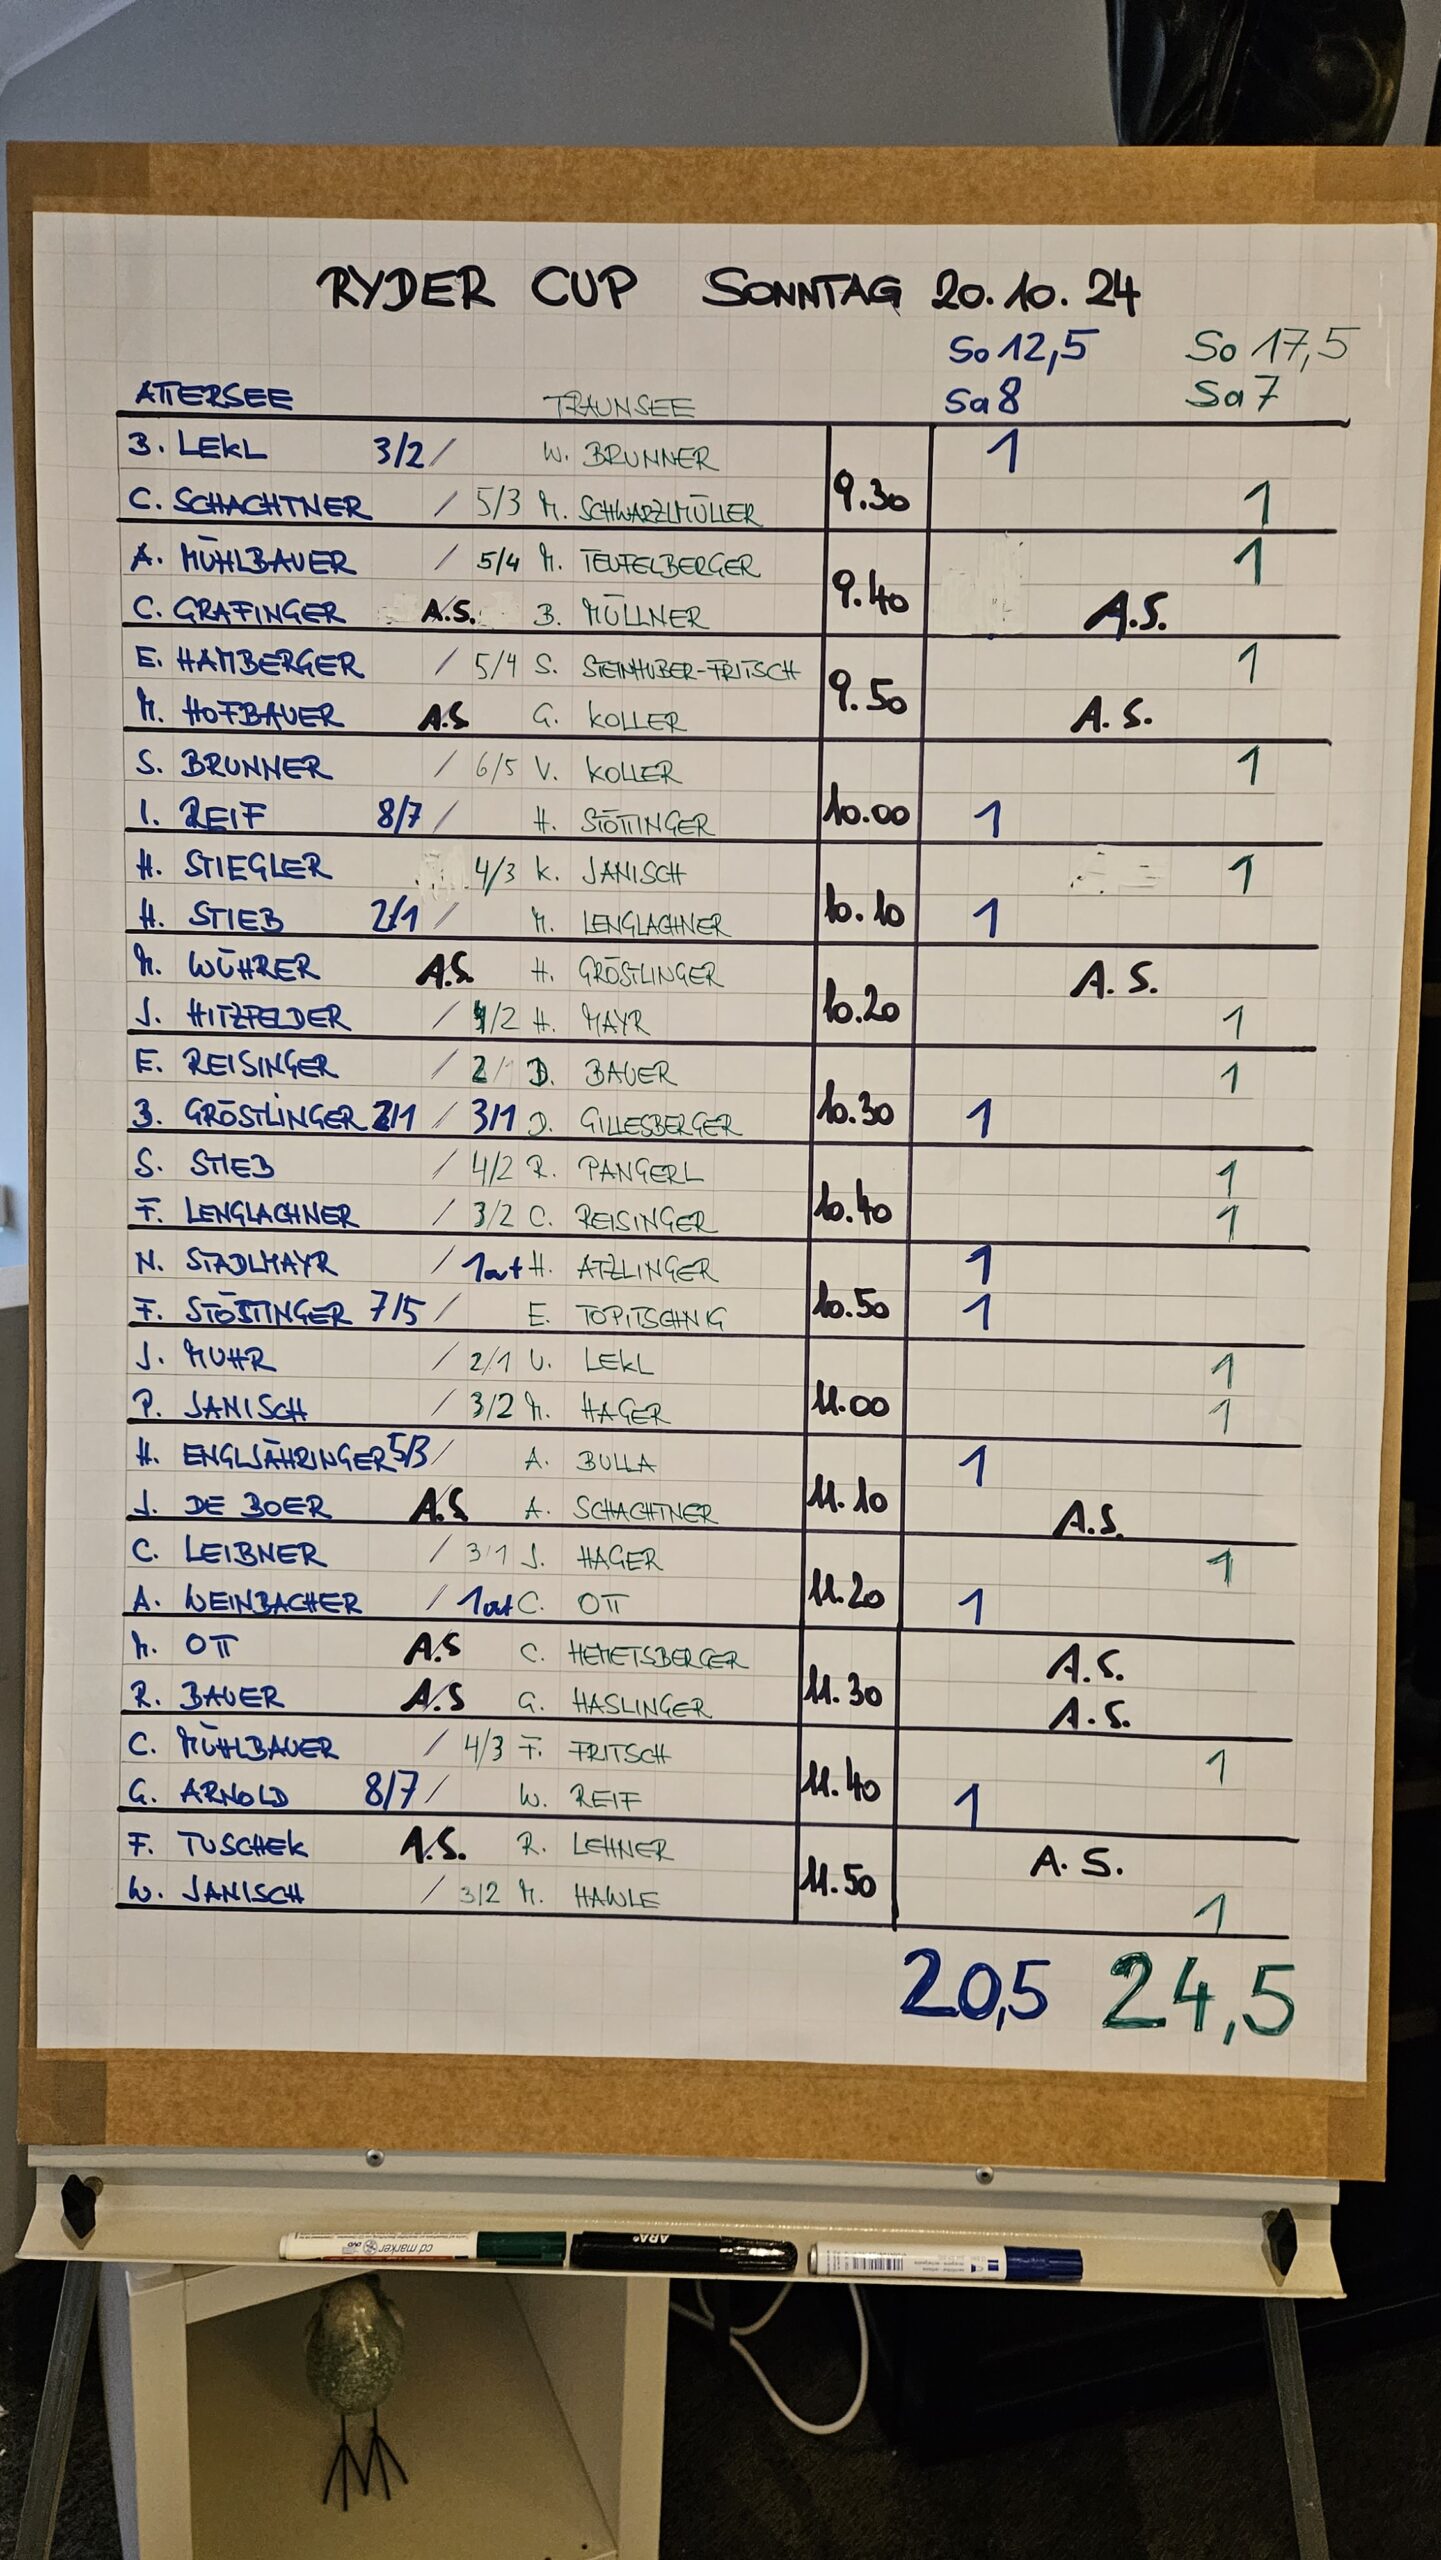 RYDER CUP SONNTAG 20.10.24
So 12,5 So 17,5
ATTERSEE TRAUNSEE Sa 8 Sa 7
B. LEKL 3/2 / W. BRUNNER 1
9.30
C. SCHACHTNER / 5/3 M. SCHWARZLMÜLLER 1
A. MÜHLBAUER / 5/4 M. TEUFELBERGER 1
9.40
C. GRAFINGER A.S. B. MÜLLNER A.S.
E. HAMBERGER / 5/4 S. STEINHUBER-FRITSCH 1
9.50
M. HOFBAUER A.S G. KOLLER A.S.
S. BRUNNER / 6/5 V. KOLLER 1
10.00
I. REIF 8/7 / H. STÖTTINGER 1
H. STIEGLER 4/3 K. JANISCH 1
10.10
H. STIEB 2/1 / M. LENGLACHNER 1
M. WÜHRER A.S. H. GRÖSTLINGER A.S.
10.20
J. HITZFELDER / /2 H. MAYR 1
E. REISINGER / 2/ D. BAUER 1
10.30
B. GRÖSTLINGER 2/1 / 3/1 D. GILLESBERGER 1
S. STIEB / 4/2 R. PANGERL 1
10.40
F. LENGLACHNER / 3/2 C. REISINGER 1
N. STADLMAYR / 1auf H. ATZLINGER 1
10.50
F. STÖTTINGER 7/5 / E. TOPITSCHNIG 1
J. MUHR / 2/1 U. LEKL 1
11.00
P. JANISCH / 3/2 M. HAGER 1
H. ENGLJÄHRINGER 5/3 / A. BULLA 1
11.10
J. DE BOER A.S A. SCHACHTNER A.S.
C. LEIBNER / 3/1 J. HAGER 1
11.20
A. WEINBACHER / 1auf C. OTT 1
M. OTT A.S C. HEMETSBERGER A.S.
11.30
R. BAUER A.S G. HASLINGER A.S.
C. MÜHLBAUER / 4/3 F. FRITSCH 1
11.40
G. ARNOLD 8/7 / W. REIF 1
F. TUSCHEK A.S. R. LEHNER A.S.
11.50
W. JANISCH / 3/2 M. HAWLE 1
20,5 24,5
cd marker ARA